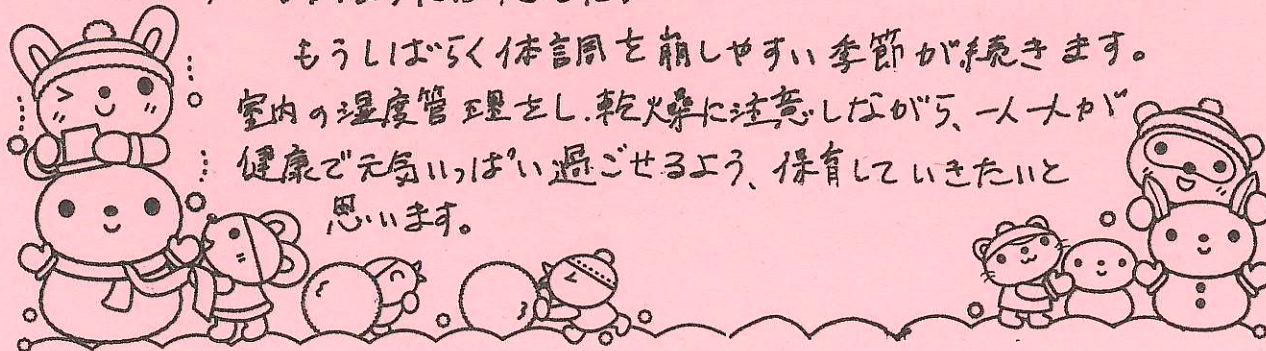 もうしばらく体調を崩しやすい季節が続きます。
室内の湿度管理をし、乾燥に注意しながら、一人一人が
健康で元気いっぱい過ごせるよう、保育していきたいと
思います。